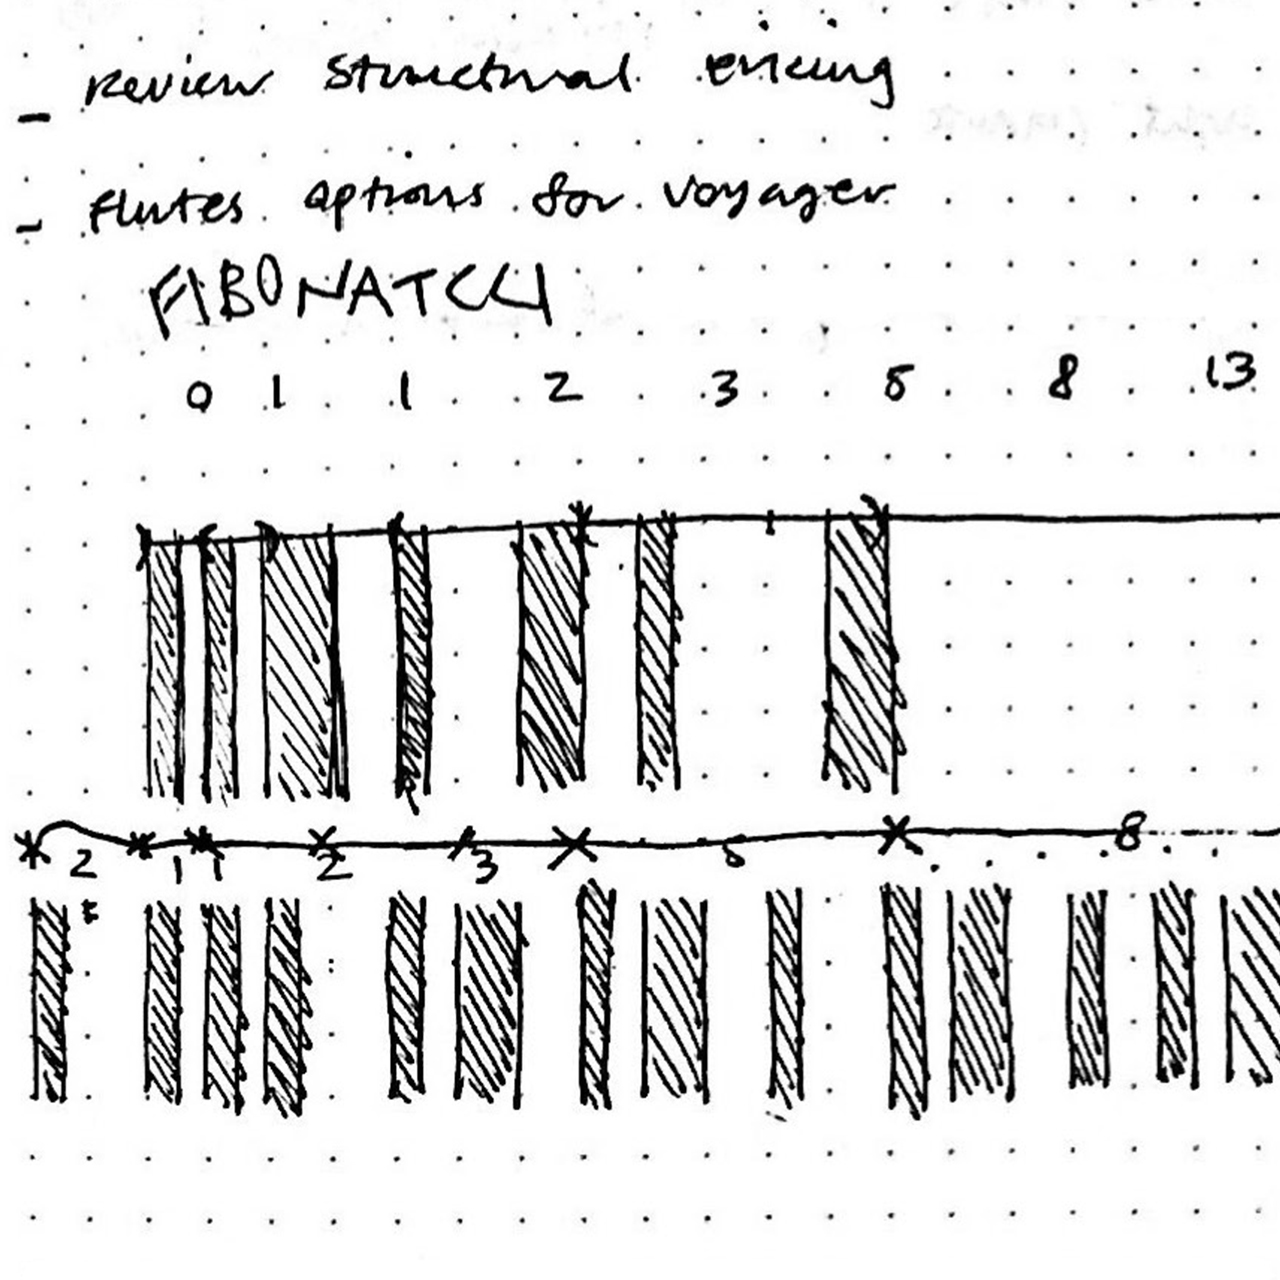 - Review Structural
- flutes options for voyager
FIBONATCCI
0 1 1 2 3 5 8 13
2 1 1 2 3 5 8